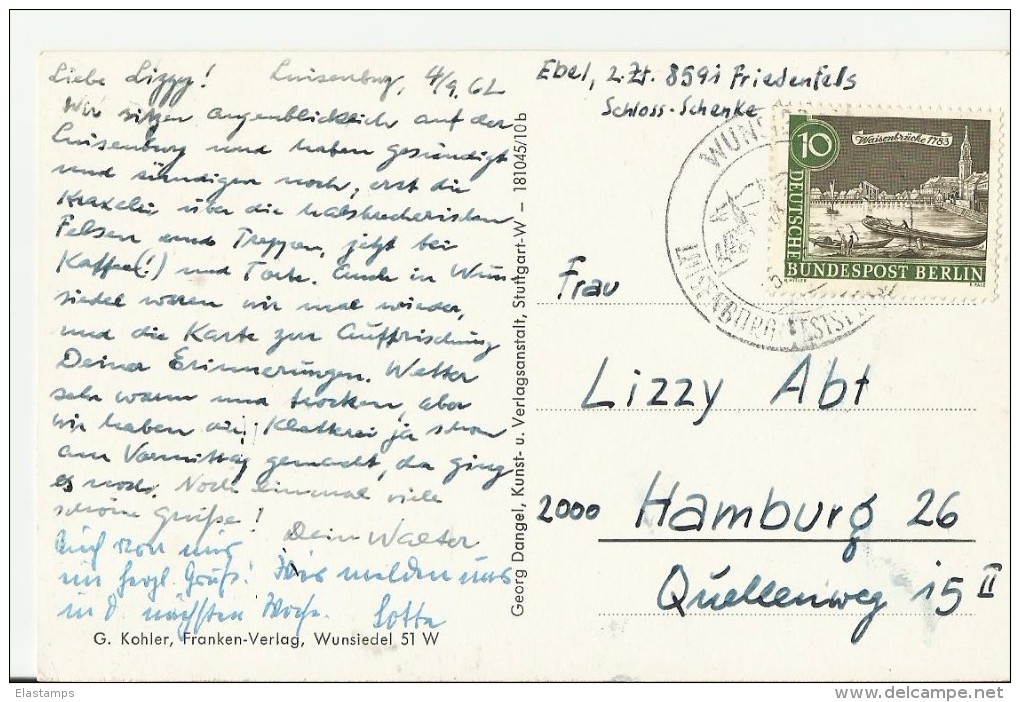 Liebe Lizzy! Luisenburg, 4/9.62
Wir sitzen augenblicklich auf der
Luisenburg und haben gesündigt
und sündigen noch, erst die
Kraxelei über die halsbrecherischen
Felsen und Treppen, jetzt bei
Kaffee(!) und Torte. Auch in Wun-
siedel waren wir mal wieder,
und die Karte zur Auffrischung
Deiner Erinnerungen. Wetter
sehr warm und trocken, aber
wir haben die Kletterei ja schon
am Vormittag gemacht, da ging
es noch. Noch einmal viele
schöne Grüße! Dein Walter
Auch von mir
ein herzl. Gruß! Wir melden uns
in d. nächsten Woche. Lotte
G. Kohler, Franken-Verlag, Wunsiedel 51 W
Georg Dangel, Kunst- u. Verlagsanstalt, Stuttgart-W – 181045/10b
Ebel, z.Zt. 8591 Friedenfels
Schloss-Schenke
10
Waisenbrücke 1783
DEUTSCHE
BUNDESPOST BERLIN
LUISENBURG FESTSP
Frau
Lizzy Abt
2000 Hamburg 26
Quellenweg 15 II
Elastamps
www.delcampe.net